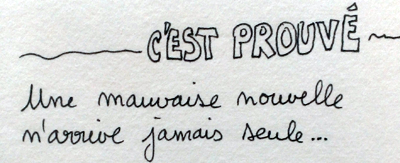 C'EST PROUVÉ
Une mauvaise nouvelle
n'arrive jamais seule...